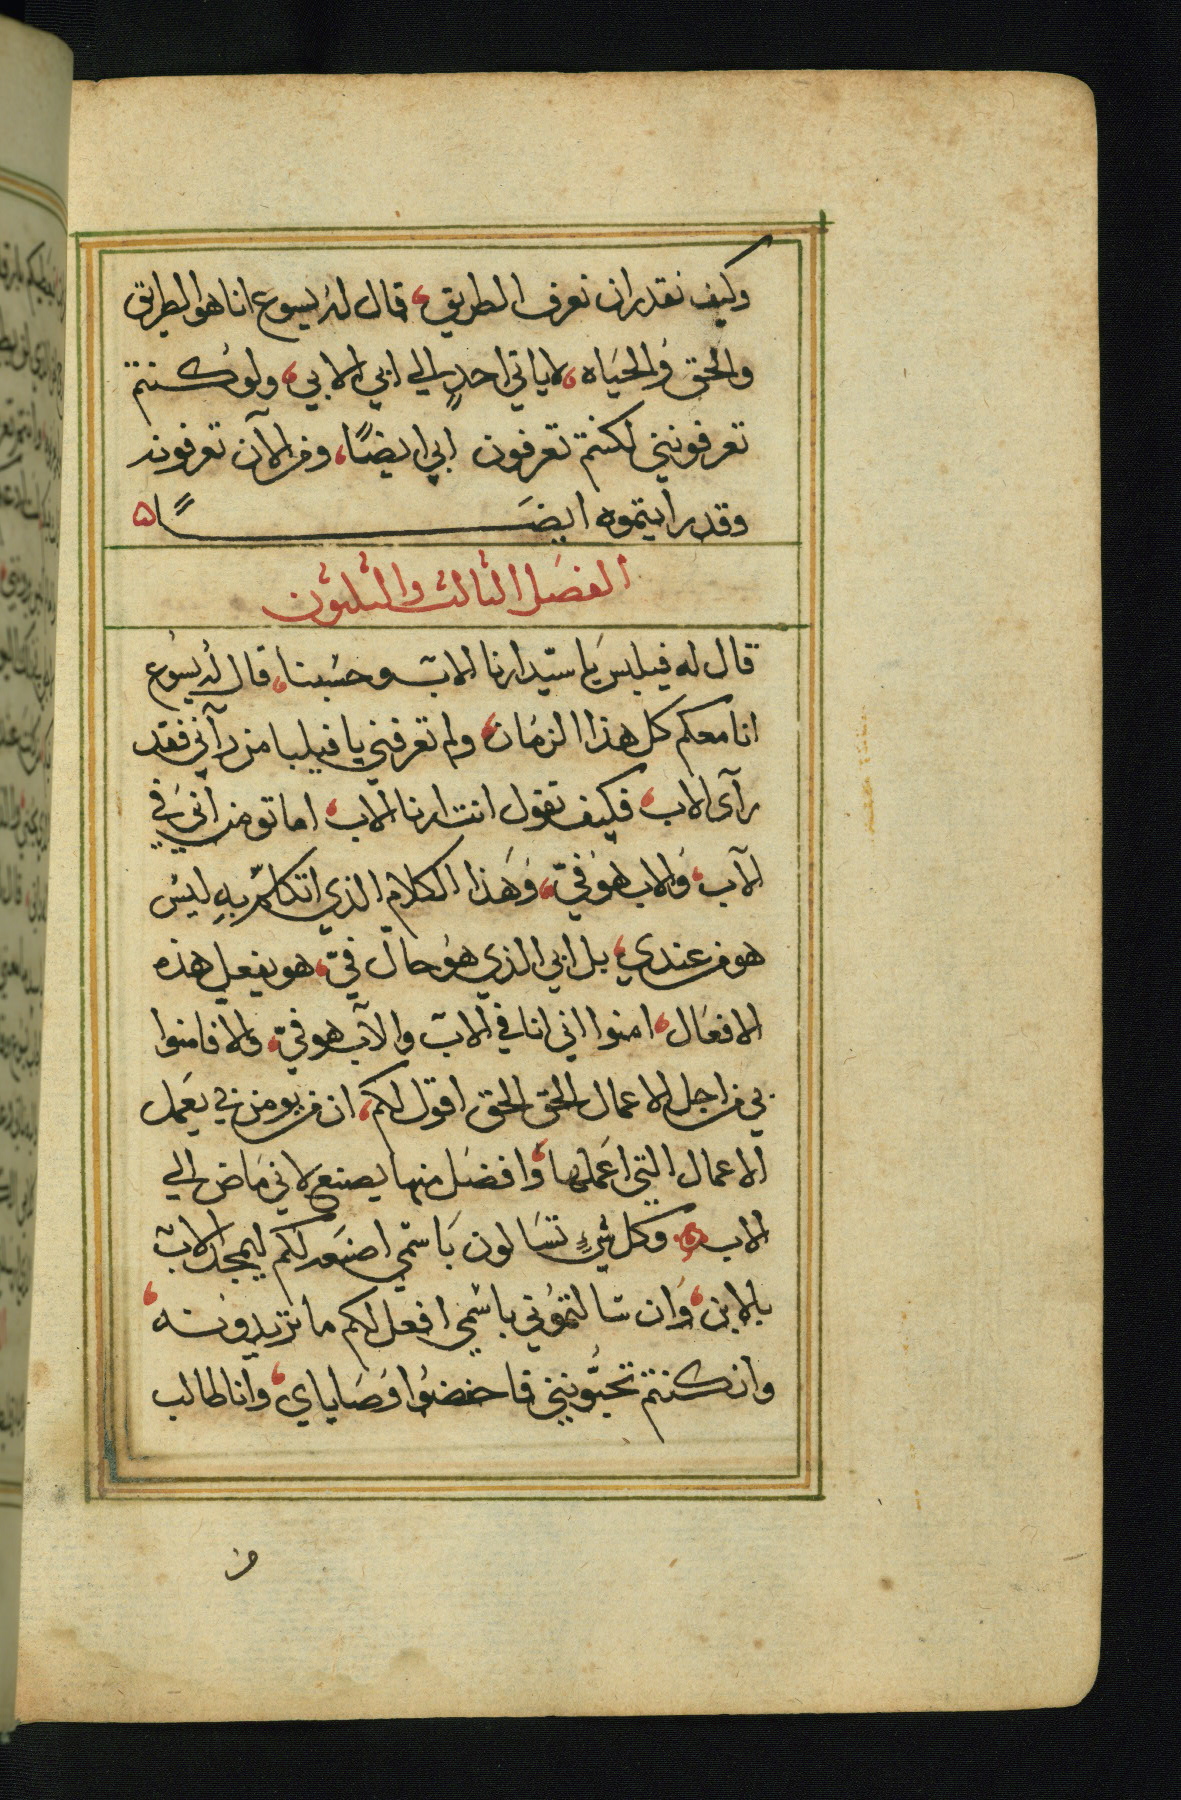 وكيف نقدر ان نعرف الطريق، قال له يسوع انا هو الطريق
والحق والحياه، لا ياتي احدٍ الي ابي الا بي، ولو كنتم
تعرفونني لكنتم تعرفون ابي ايضًا، ومن الآن تعرفونه
وقد رايتموه ايضًا
الفصل الثالث والثلثون
قال له فيلبس يا سيّد ارنا الاب وحسبنا، قال له يسوع
انا معكم كل هذا الزمان، ولم تعرفني يا فيلبا من رآني فقد
رآى الاب، فكيف تقول انت ارنا الاب، اما تومن انني في
الآب، والاب هو فيّ، وهذا الكلام الذي اتكلّم به ليس
هو من عندي، بل ابي الذي هو حال فيّ، هو يفعل هذه
الافعال، امنوا اني انا في الاب والآب هو فيّ، والا فامنوا
بي من اجل الاعمال الحق الحق اقول لكم، ان من يومن بي يعمل
الاعمال التي اعملها، وافضل منها يصنع لاني ماض الي
الاب وكل شيءٍ تسالون باسمي اصنعه لكم ليمجد الاب
بالابن، وان سالتموني باسمي افعل لكم ما تريدونه،
وان كنتم تحبّونني فاحفضوا وصاياي، وانا اطالب
من